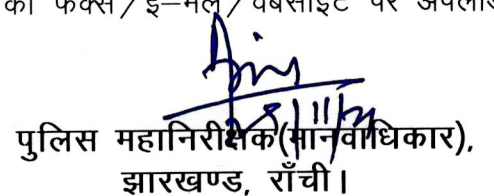 को फैक्स/ई–मेल/वेबसाईट पर अपलोड
पुलिस महानिरीक्षक(मानवाधिकार),
झारखण्ड, राँची।